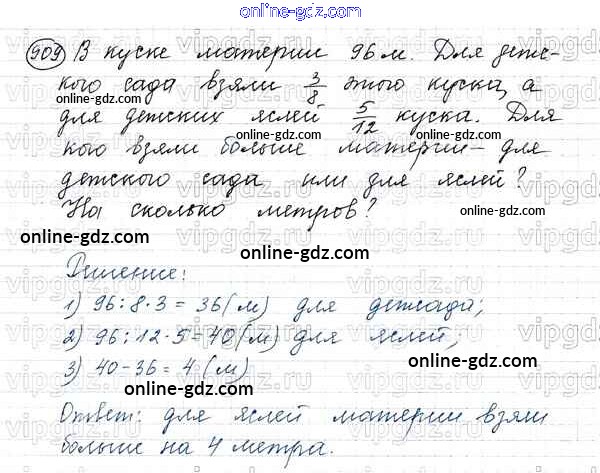 online-gdz.com
909 В куске материи 96 м. Для детс-
кого сада взяли 3/8 этого куска, а
online-gdz.com
для детских яслей 5/12 куска. Для
online-gdz.com
кого взяли больше материи – для
online-gdz.com
детского сада или для яслей?
На сколько метров?
online-gdz.com
online-gdz.com
Решение:
online-gdz.com
1) 96:8·3=36(м) для детсада;
online-gdz.com
2) 96:12·5=40(м) для яслей;
3) 40-36=4(м)
online-gdz.com
online-gdz.com
Ответ: для яслей материи взяли
больше на 4 метра.
online-gdz.com